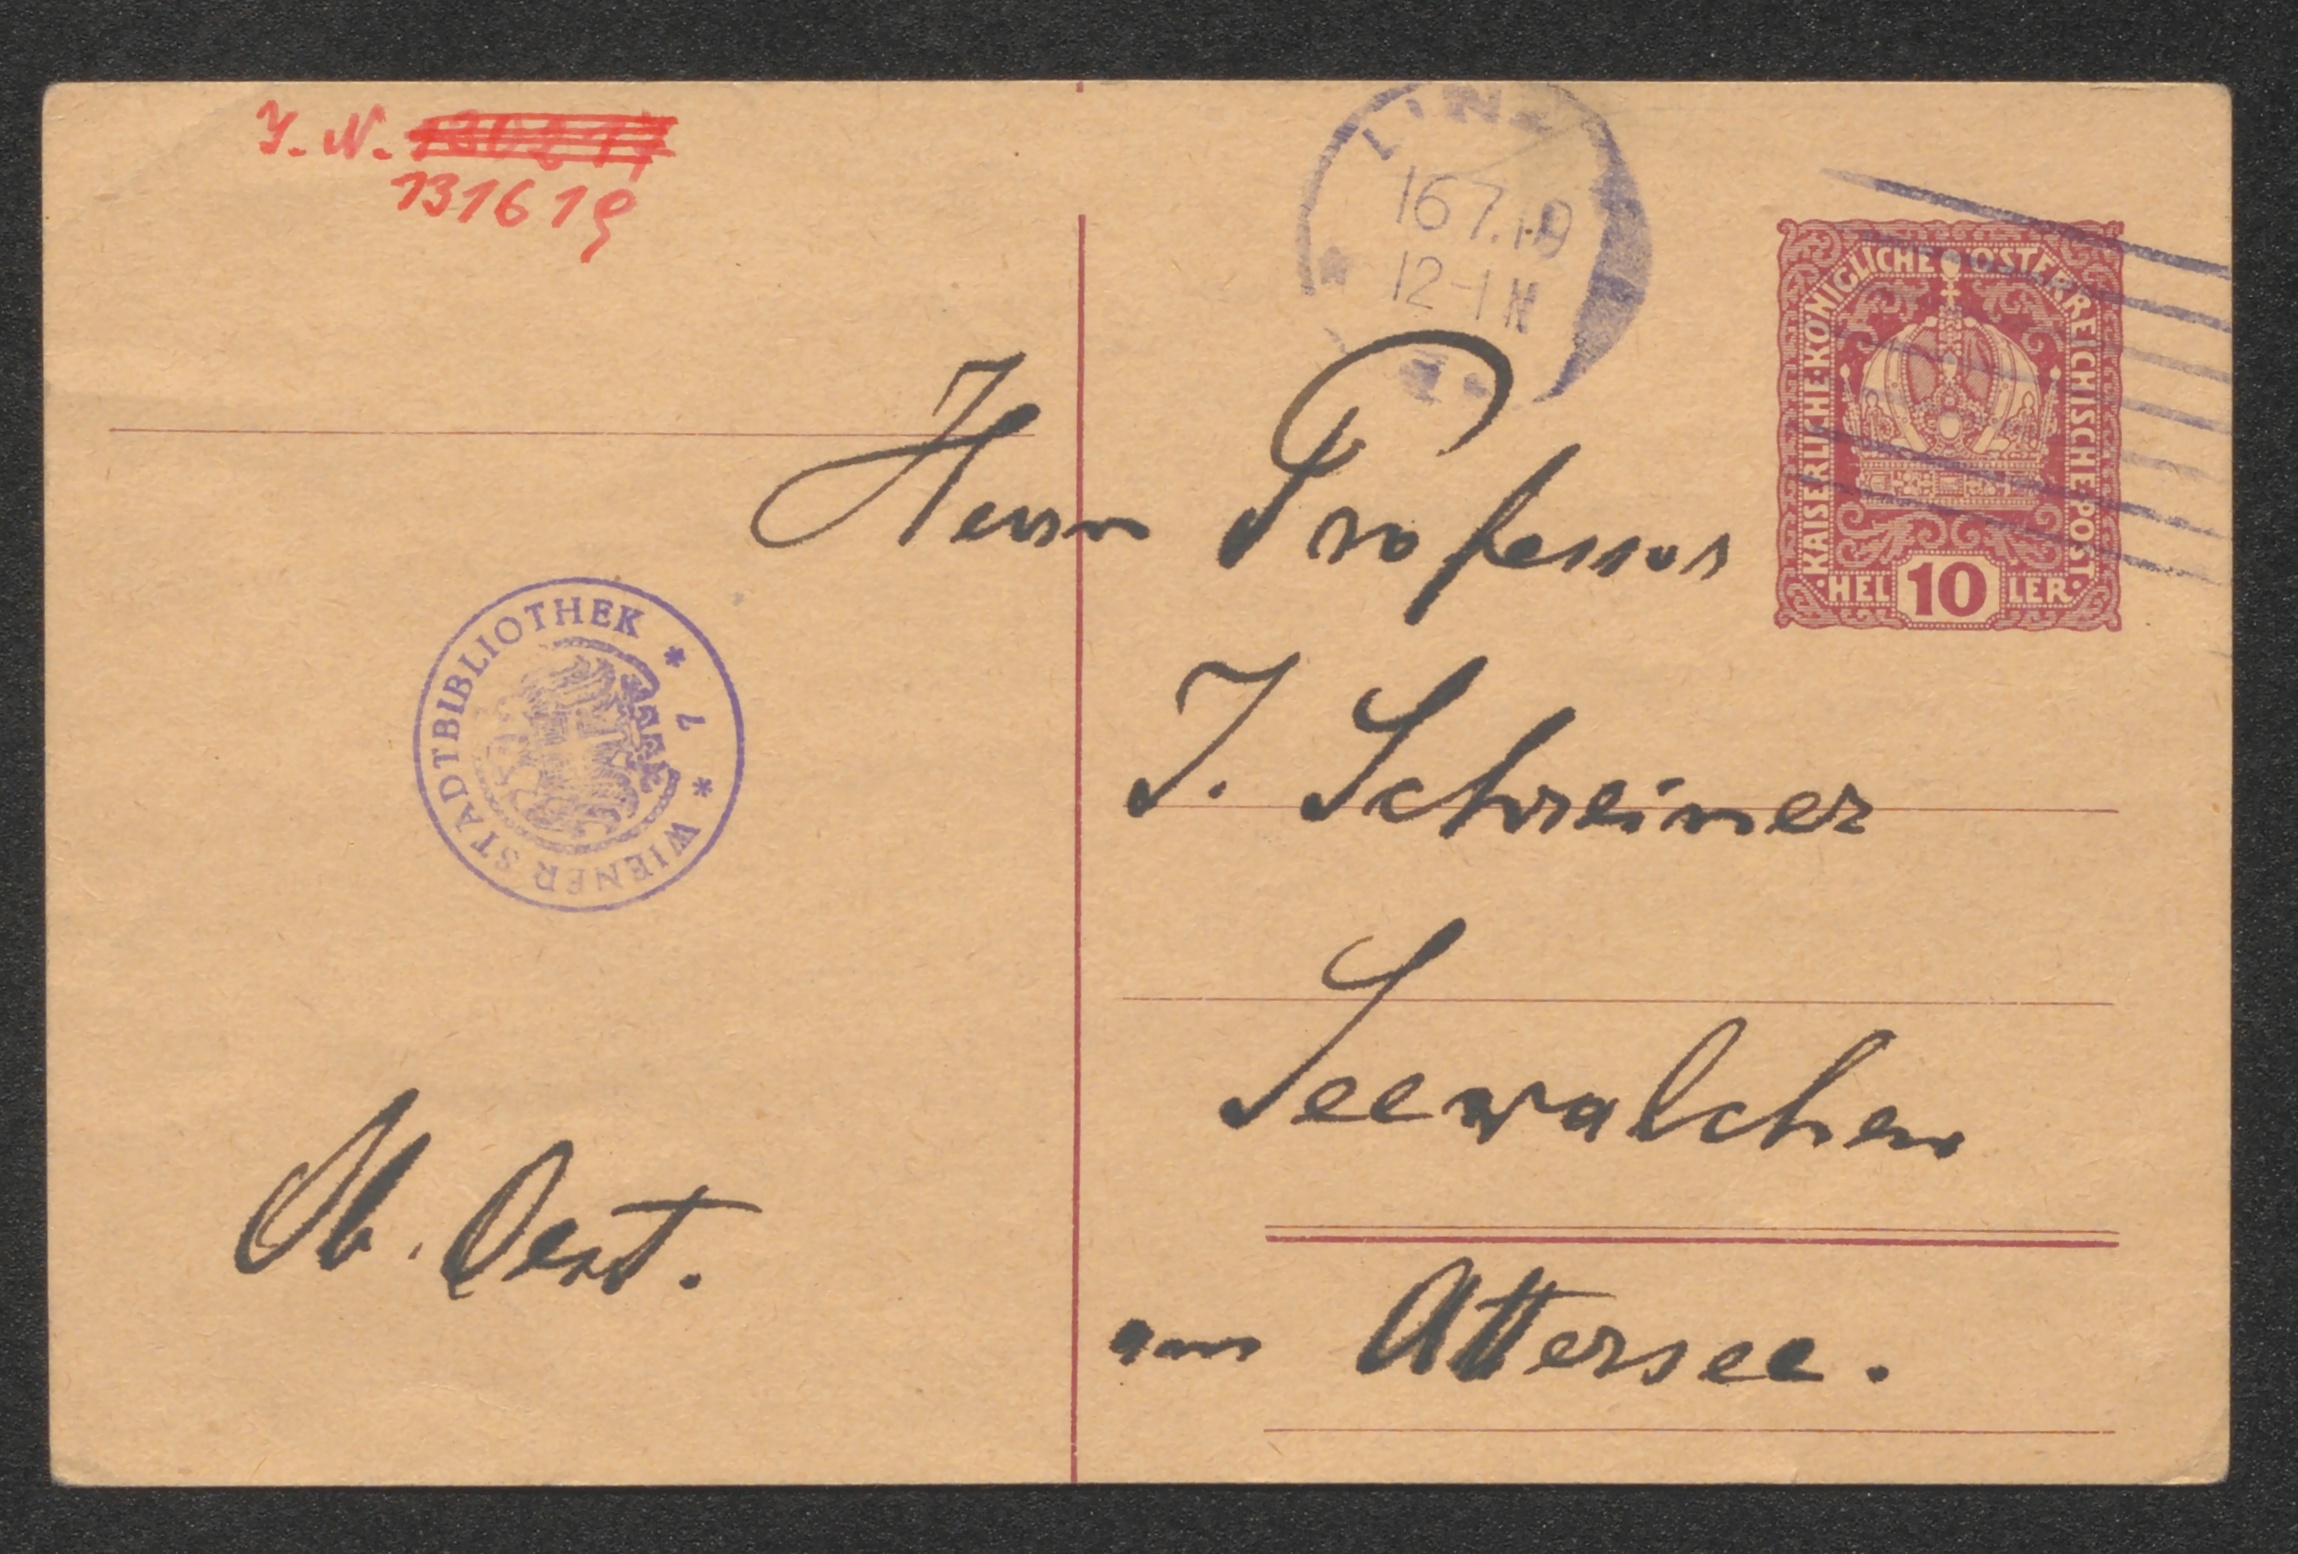 J. N. 130217
131619
LINZ
16 7. 19
12-1 N
KAISERLICHE·KÖNIGLICHE ÖSTERREICHISCHE·POST
HEL 10 LER
Herrn Professor
J. Schreiner
WIENER STADTBIBLIOTHEK
Seewalchen
Ob. Oest.
am Attersee.